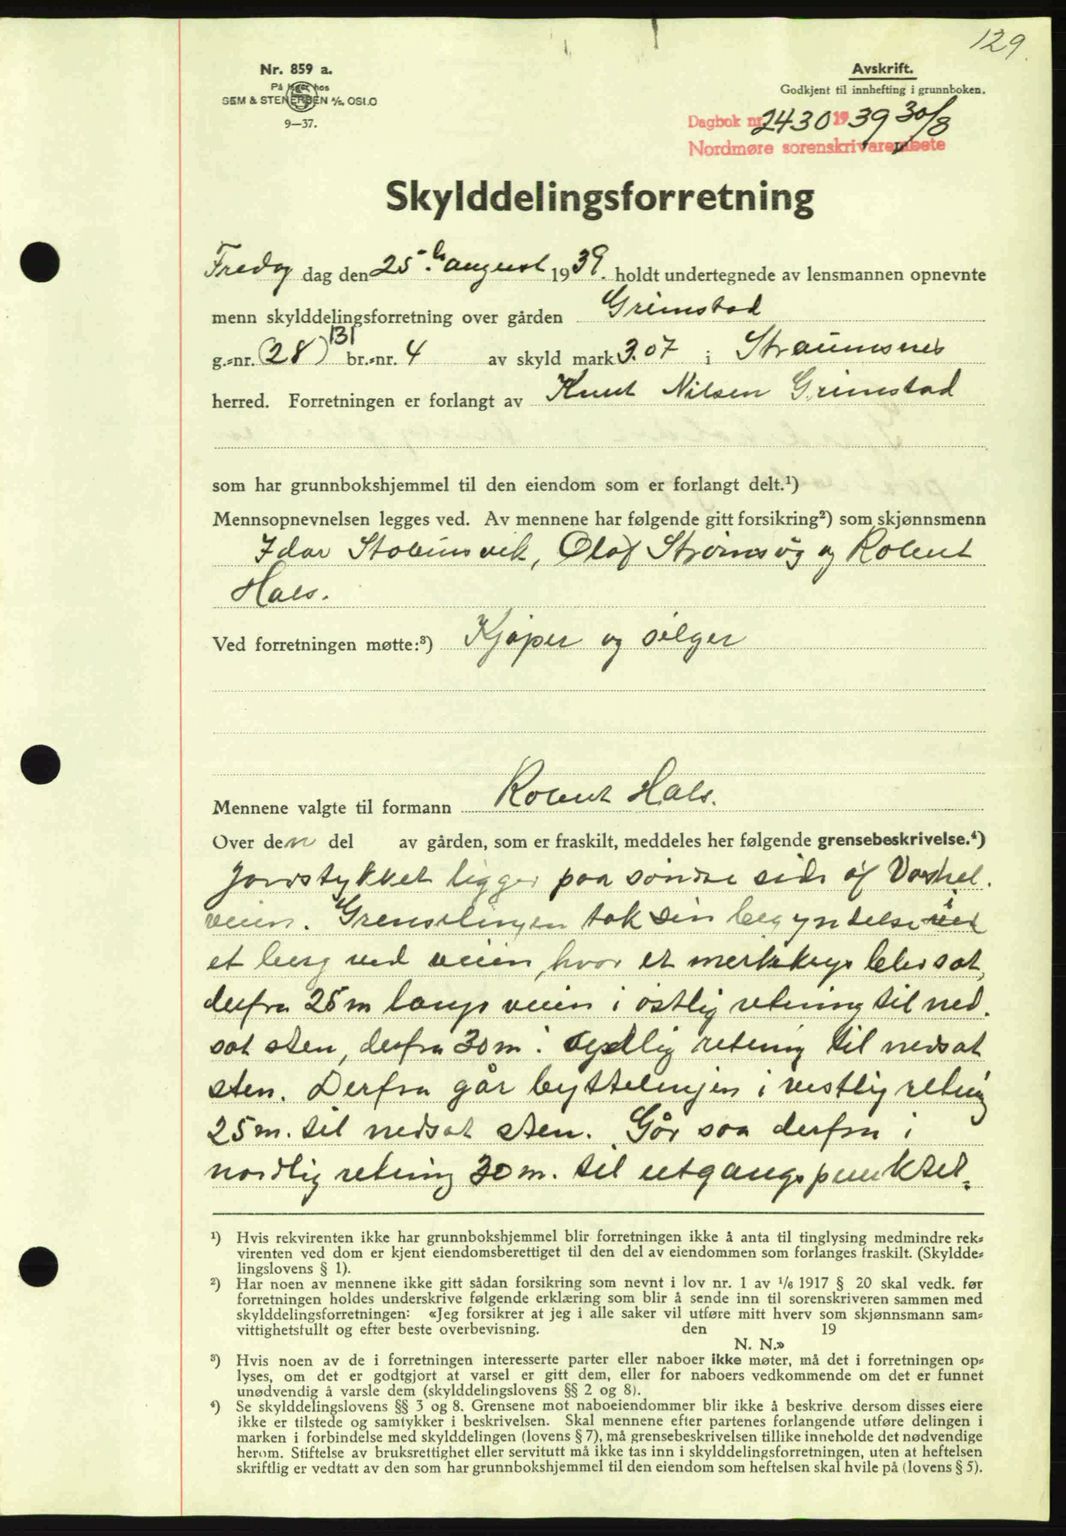 129
Nr. 859 a.
På lager hos
SEM & STENERSEN A/S, OSLO
9—37.
Avskrift.
Godkjent til innhefting i grunnboken.
Dagbok nr. 2430 1939 30/8
Nordmøre sorenskriverembete
Skylddelingsforretning
Fredag dag den 25. august 1939. holdt undertegnede av lensmannen opnevnte
menn skylddelingsforretning over gården Grimstad
g.-nr. (28) 131 br.-nr. 4 av skyld mark 3.07 i Straumsnes
herred. Forretningen er forlangt av Knut Nilsen Grimstad
som har grunnbokshjemmel til den eiendom som er forlangt delt.¹)
Mennsopnevnelsen legges ved. Av mennene har følgende gitt forsikring²) som skjønnsmenn
Idar Stokinsvik, Olaf Strømsøg og Robert
Hals.
Ved forretningen møtte:³) Kjøper og selger
Mennene valgte til formann Robert Hals.
Over den del av gården, som er fraskilt, meddeles her følgende grensebeskrivelse.⁴)
Jordstykket ligger paa søndre side af
veien. Grenselinjen tok sin begyndelse i
et berg ved veien, hvor et merkekrys blev sat,
derfra 25 m langs veien i østlig retning til ned-
sat sten, derfra 30 m. i sydlig retning til nedsat
sten. Derfra går byttelinjen i vestlig retning
25 m. til nedsat sten. Går saa derfra i
nordlig retning 30 m. til utgangspunktet.
¹) Hvis rekvirenten ikke har grunnbokshjemmel blir forretningen ikke å anta til tinglysing medmindre rek-
virenten ved dom er kjent eiendomsberettiget til den del av eiendommen som forlanges fraskilt. (Skyldde-
lingslovens § 1).
²) Har noen av mennene ikke gitt sådan forsikring som nevnt i lov nr. 1 av 1/6 1917 § 20 skal vedk. før
forretningen holdes underskrive følgende erklæring som blir å sende inn til sorenskriveren sammen med
skylddelingsforretningen: «Jeg forsikrer at jeg i alle saker vil utføre mitt hverv som skjønnsmann sam-
vittighetsfullt og efter beste overbevisning. den 19
N. N.»
³) Hvis noen av de i forretningen interesserte parter eller naboer ikke møter, må det i forretningen op-
lyses, om det er godtgjort at varsel er gitt dem, eller for naboers vedkommende om det er funnet
unødvendig å varsle dem (skylddelingslovens §§ 2 og 8).
⁴) Se skylddelingslovens §§ 3 og 8. Grensene mot naboeiendommer blir ikke å beskrive dersom disses eiere
ikke er tilstede og samtykker i beskrivelsen. Skal mennene efter partenes forlangende utføre delingen i
marken i forbindelse med skylddelingen (lovens § 7), må grensebeskrivelsen tillike inneholde det nødvendige
herom. Stiftelse av bruksrettighet eller servitutt må ikke tas inn i skylddelingsforretningen, uten at heftelsen
skriftlig er vedtatt av den som har grunnbokshjemmel til den eiendom som heftelsen skal hvile på (lovens § 5).